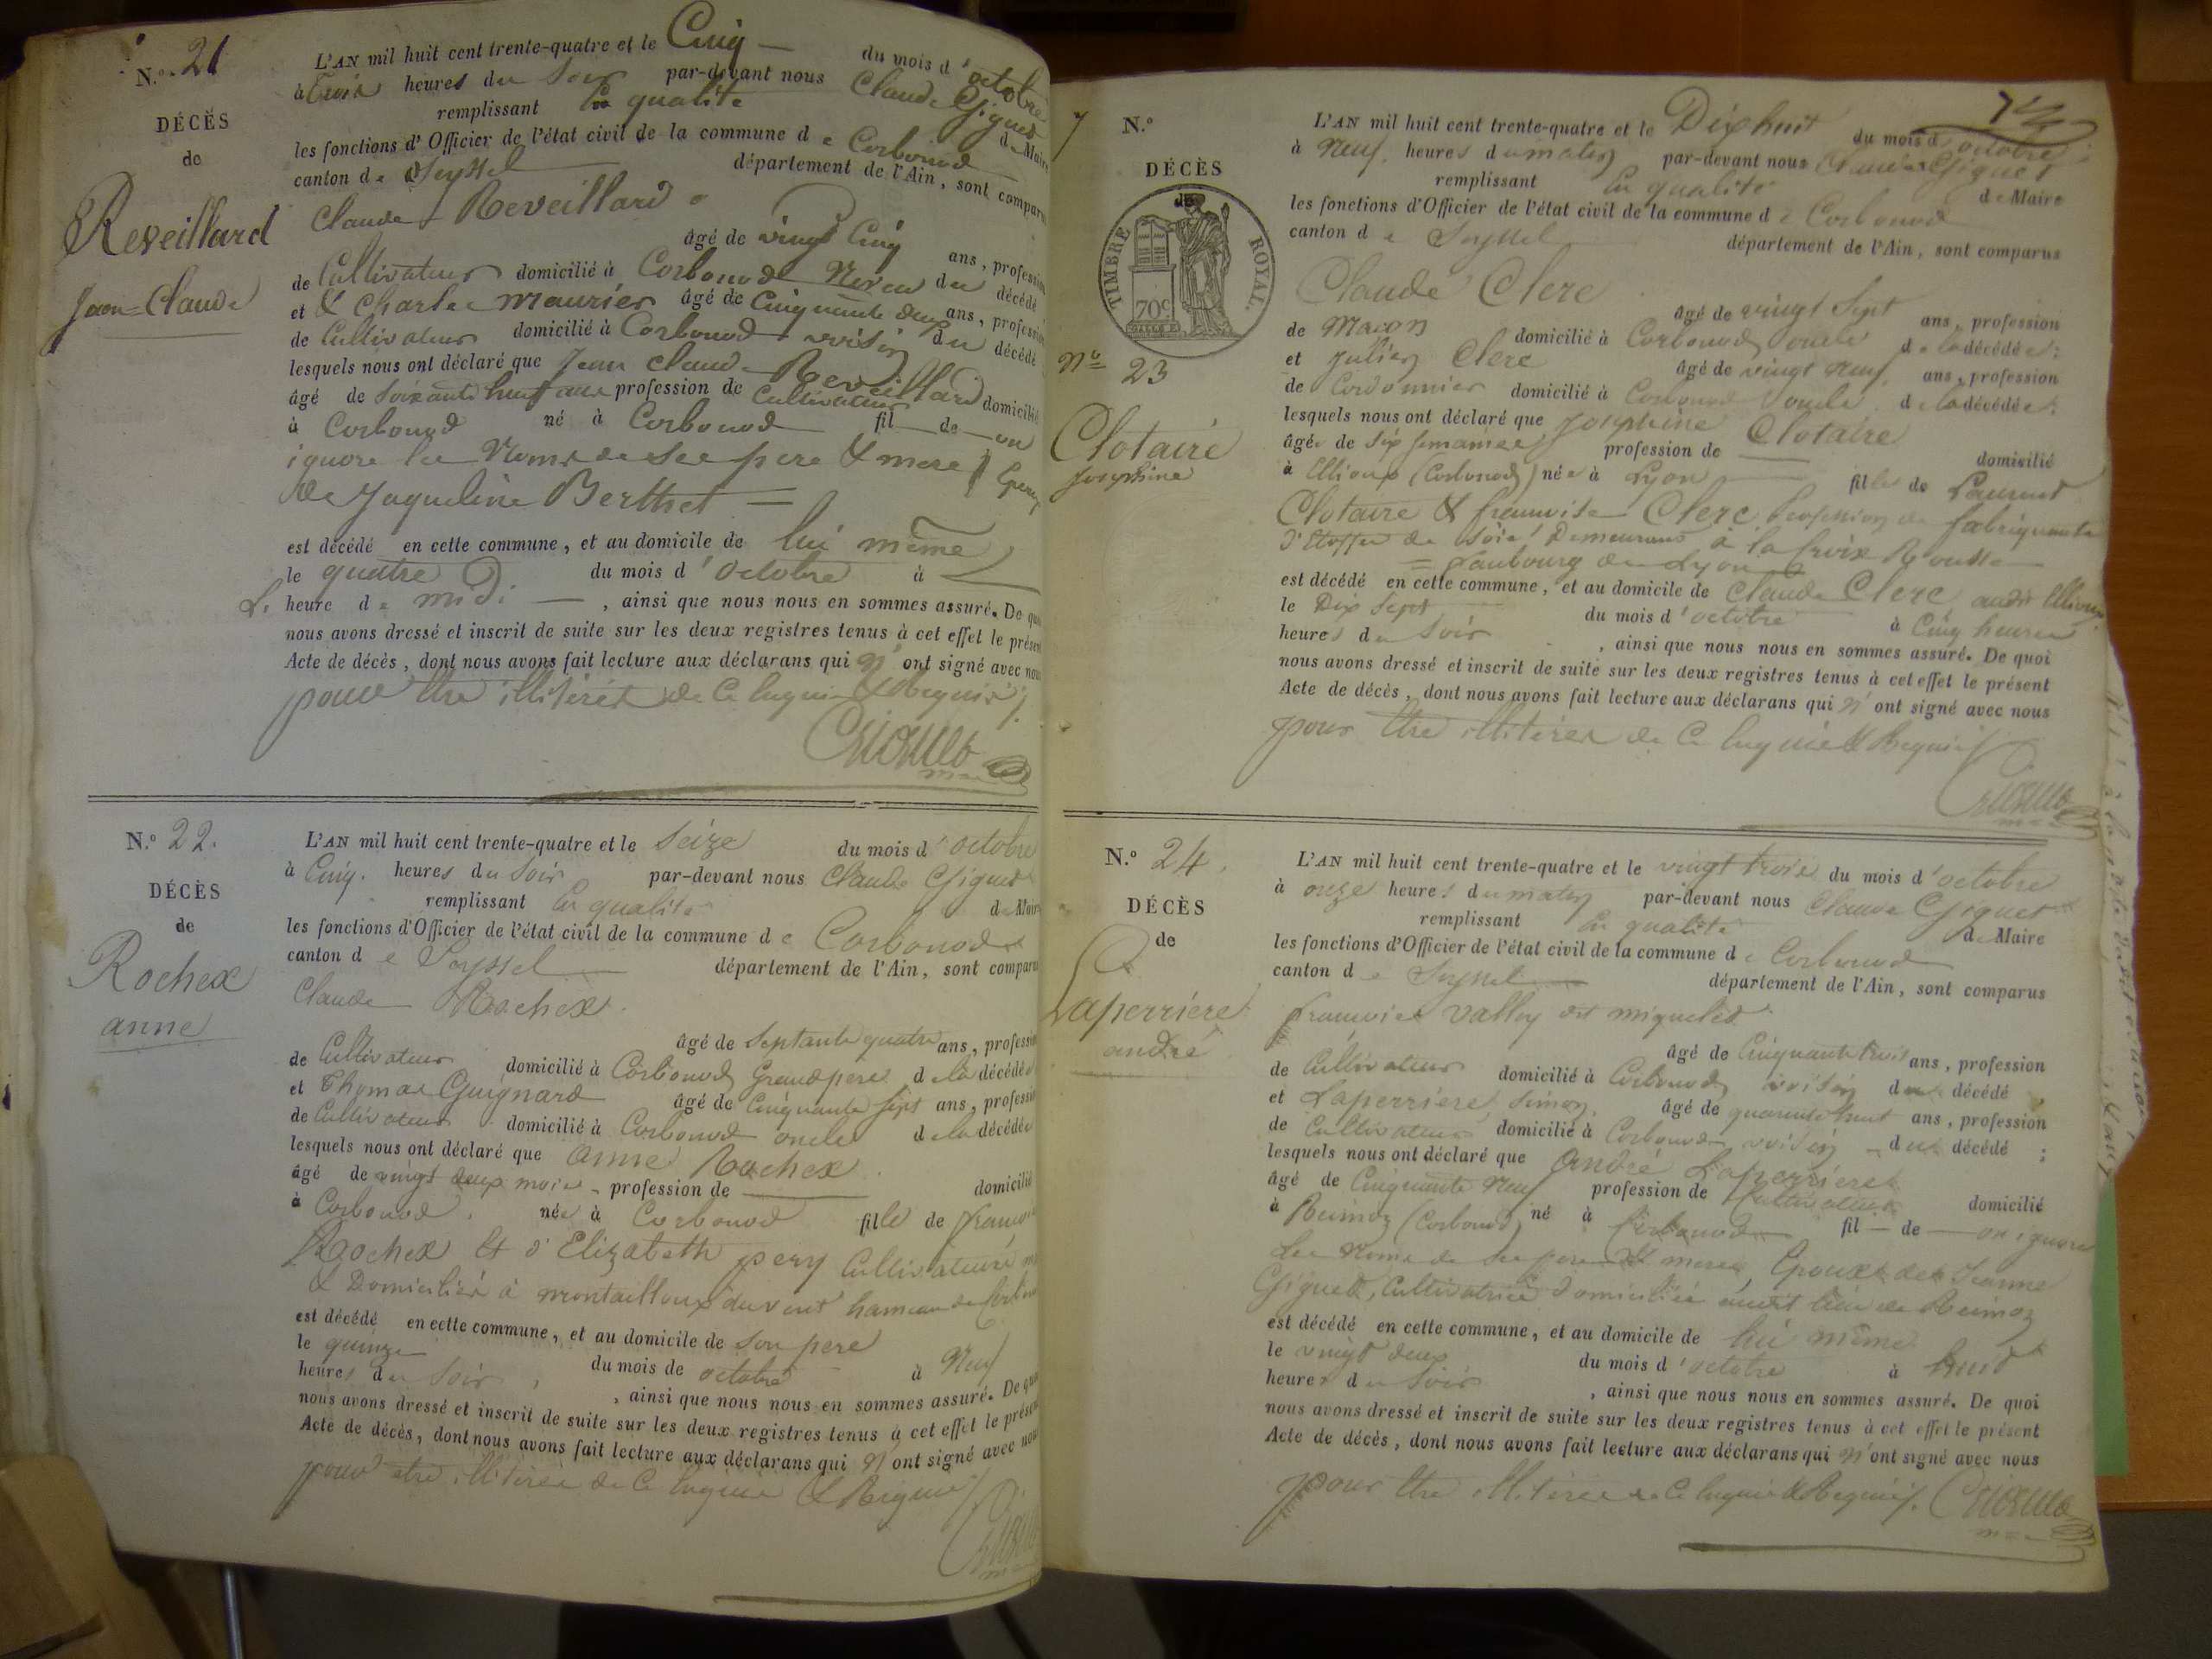 N.º 21
DÉCÈS
de
Reveillard
Jean=Claude
L'AN mil huit cent trente-quatre et le Cinq du mois d'octobre
à Trois heures du Soir par-devant nous Claude Giguet
remplissant En qualité de Maire
les fonctions d'Officier de l'état civil de la commune de Corbonod
canton de Seyssel département de l'Ain, sont comparu
Claude Reveillard
âgé de vingt Cinq ans, profession
de Cultivateur domicilié à Corbonod Neveu du décédé
et & Charles Maurier âgé de Cinquante deux ans, profession
de Cultivateur domicilié à Corbonod voisin du décédé
lesquels nous ont déclaré que Jean Claude Reveillard
âgé de Soixante huit ans profession de Cultivateur domicilié
à Corbonod né à Corbonod fil de on
ignore les Noms de Ses pere & mere Epoux
De Jaqueline Berthet
est décédé en cette commune, et au domicile de lui même
le quatre du mois d'octobre à
L. heure de midi, ainsi que nous nous en sommes assuré. De quoi
nous avons dressé et inscrit de suite sur les deux registres tenus à cet effet le présent
Acte de décès, dont nous avons fait lecture aux déclarans qui n'ont signé avec nous
pour Etre illiterés de Ce Enquis & Requis
Giguet
N.º 22.
DÉCÈS
de
Rochex
anne
L'AN mil huit cent trente-quatre et le Seize du mois d'octobre
à Cinq heures du Soir par-devant nous Claude Giguet
remplissant En qualité de Maire
les fonctions d'Officier de l'état civil de la commune de Corbonod
canton de Seyssel département de l'Ain, sont comparu
Claude Rochex
âgé de Septante quatre ans, profession
de Cultivateur domicilié à Corbonod Grand pere de la décédée
et Thomas Guignard âgé de Cinquante Sept ans, profession
de Cultivateur domicilié à Corbonod oncle de la décédée
lesquels nous ont déclaré que Anne Rochex
âgé de vingt deux mois profession de domicilié
à Corbonod née à Corbonod fille de François
Rochex & d'Elizabeth pery Cultivateurs
& Domiciliés à montailloux hameau de Corbonod
est décédé en cette commune, et au domicile de Son pere
le quinze du mois de octobre à Neuf
heures du Soir, ainsi que nous nous en sommes assuré. De quoi
nous avons dressé et inscrit de suite sur les deux registres tenus à cet effet le présent
Acte de décès, dont nous avons fait lecture aux déclarans qui n'ont signé avec nous
pour être illiterés de Ce Enquis & Requis
7
N.º
DÉCÈS
de
TIMBRE ROYAL
70c
Nº 23
Clotaire
Josephine
L'AN mil huit cent trente-quatre et le Dix huit du mois d'octobre
à Neuf heures du matin par-devant nous Claude Giguet
remplissant En qualité de Maire
les fonctions d'Officier de l'état civil de la commune de Corbonod
canton de Seyssel département de l'Ain, sont comparus
Claude Clerc
âgé de vingt Sept ans, profession
de Maçon domicilié à Corbonod oncle de la décédée;
et Julien Clerc âgé de vingt neuf ans, profession
de Cordonnier domicilié à Corbonod oncle de la décédée;
lesquels nous ont déclaré que Josephine Clotaire
âgée de Six Semaines profession de domicilié
à Ellioux (Corbonod) née à Lyon fille de Laurent
Clotaire & françoise Clerc profession de fabriquants
d'Etoffes de Soie, Demeurans à la Croix Rousse
= faubourg de Lyon
est décédé en cette commune, et au domicile de Claude Clerc audit Ellioux
le Dix Sept du mois d'octobre à Cinq heures
heures du Soir, ainsi que nous nous en sommes assuré. De quoi
nous avons dressé et inscrit de suite sur les deux registres tenus à cet effet le présent
Acte de décès, dont nous avons fait lecture aux déclarans qui n'ont signé avec nous
pour Etre illiterés de Ce Enquis & Requis
Giguet
N.º 24.
DÉCÈS
de
Laperriere
andré
L'AN mil huit cent trente-quatre et le vingt trois du mois d'octobre
à onze heures du matin par-devant nous Claude Giguet
remplissant En qualité de Maire
les fonctions d'Officier de l'état civil de la commune de Corbonod
canton de Seyssel département de l'Ain, sont comparus
françois Vallou dit miquelet
âgé de Cinquante trois ans, profession
de Cultivateur domicilié à Corbonod voisin du décédé,
et Laperriere Simon, âgé de quarante huit ans, profession
de Cultivateur domicilié à Corbonod voisin du décédé;
lesquels nous ont déclaré que André Laperriere
âgé de Cinquante Neuf profession de Cultivateur domicilié
à Reimoz (Corbonod) né à Corbonod fil de on ignore
Les Noms de Ses pere & mere, Epoux de Jeanne
Giguet, Cultivatrice Domiciliée audit lieu de Reimoz
est décédé en cette commune, et au domicile de lui même
le vingt deux du mois d'octobre à huit
heures du Soir, ainsi que nous nous en sommes assuré. De quoi
nous avons dressé et inscrit de suite sur les deux registres tenus à cet effet le présent
Acte de décès, dont nous avons fait lecture aux déclarans qui n'ont signé avec nous
pour Etre illiterés de Ce Enquis & Requis. Giguet